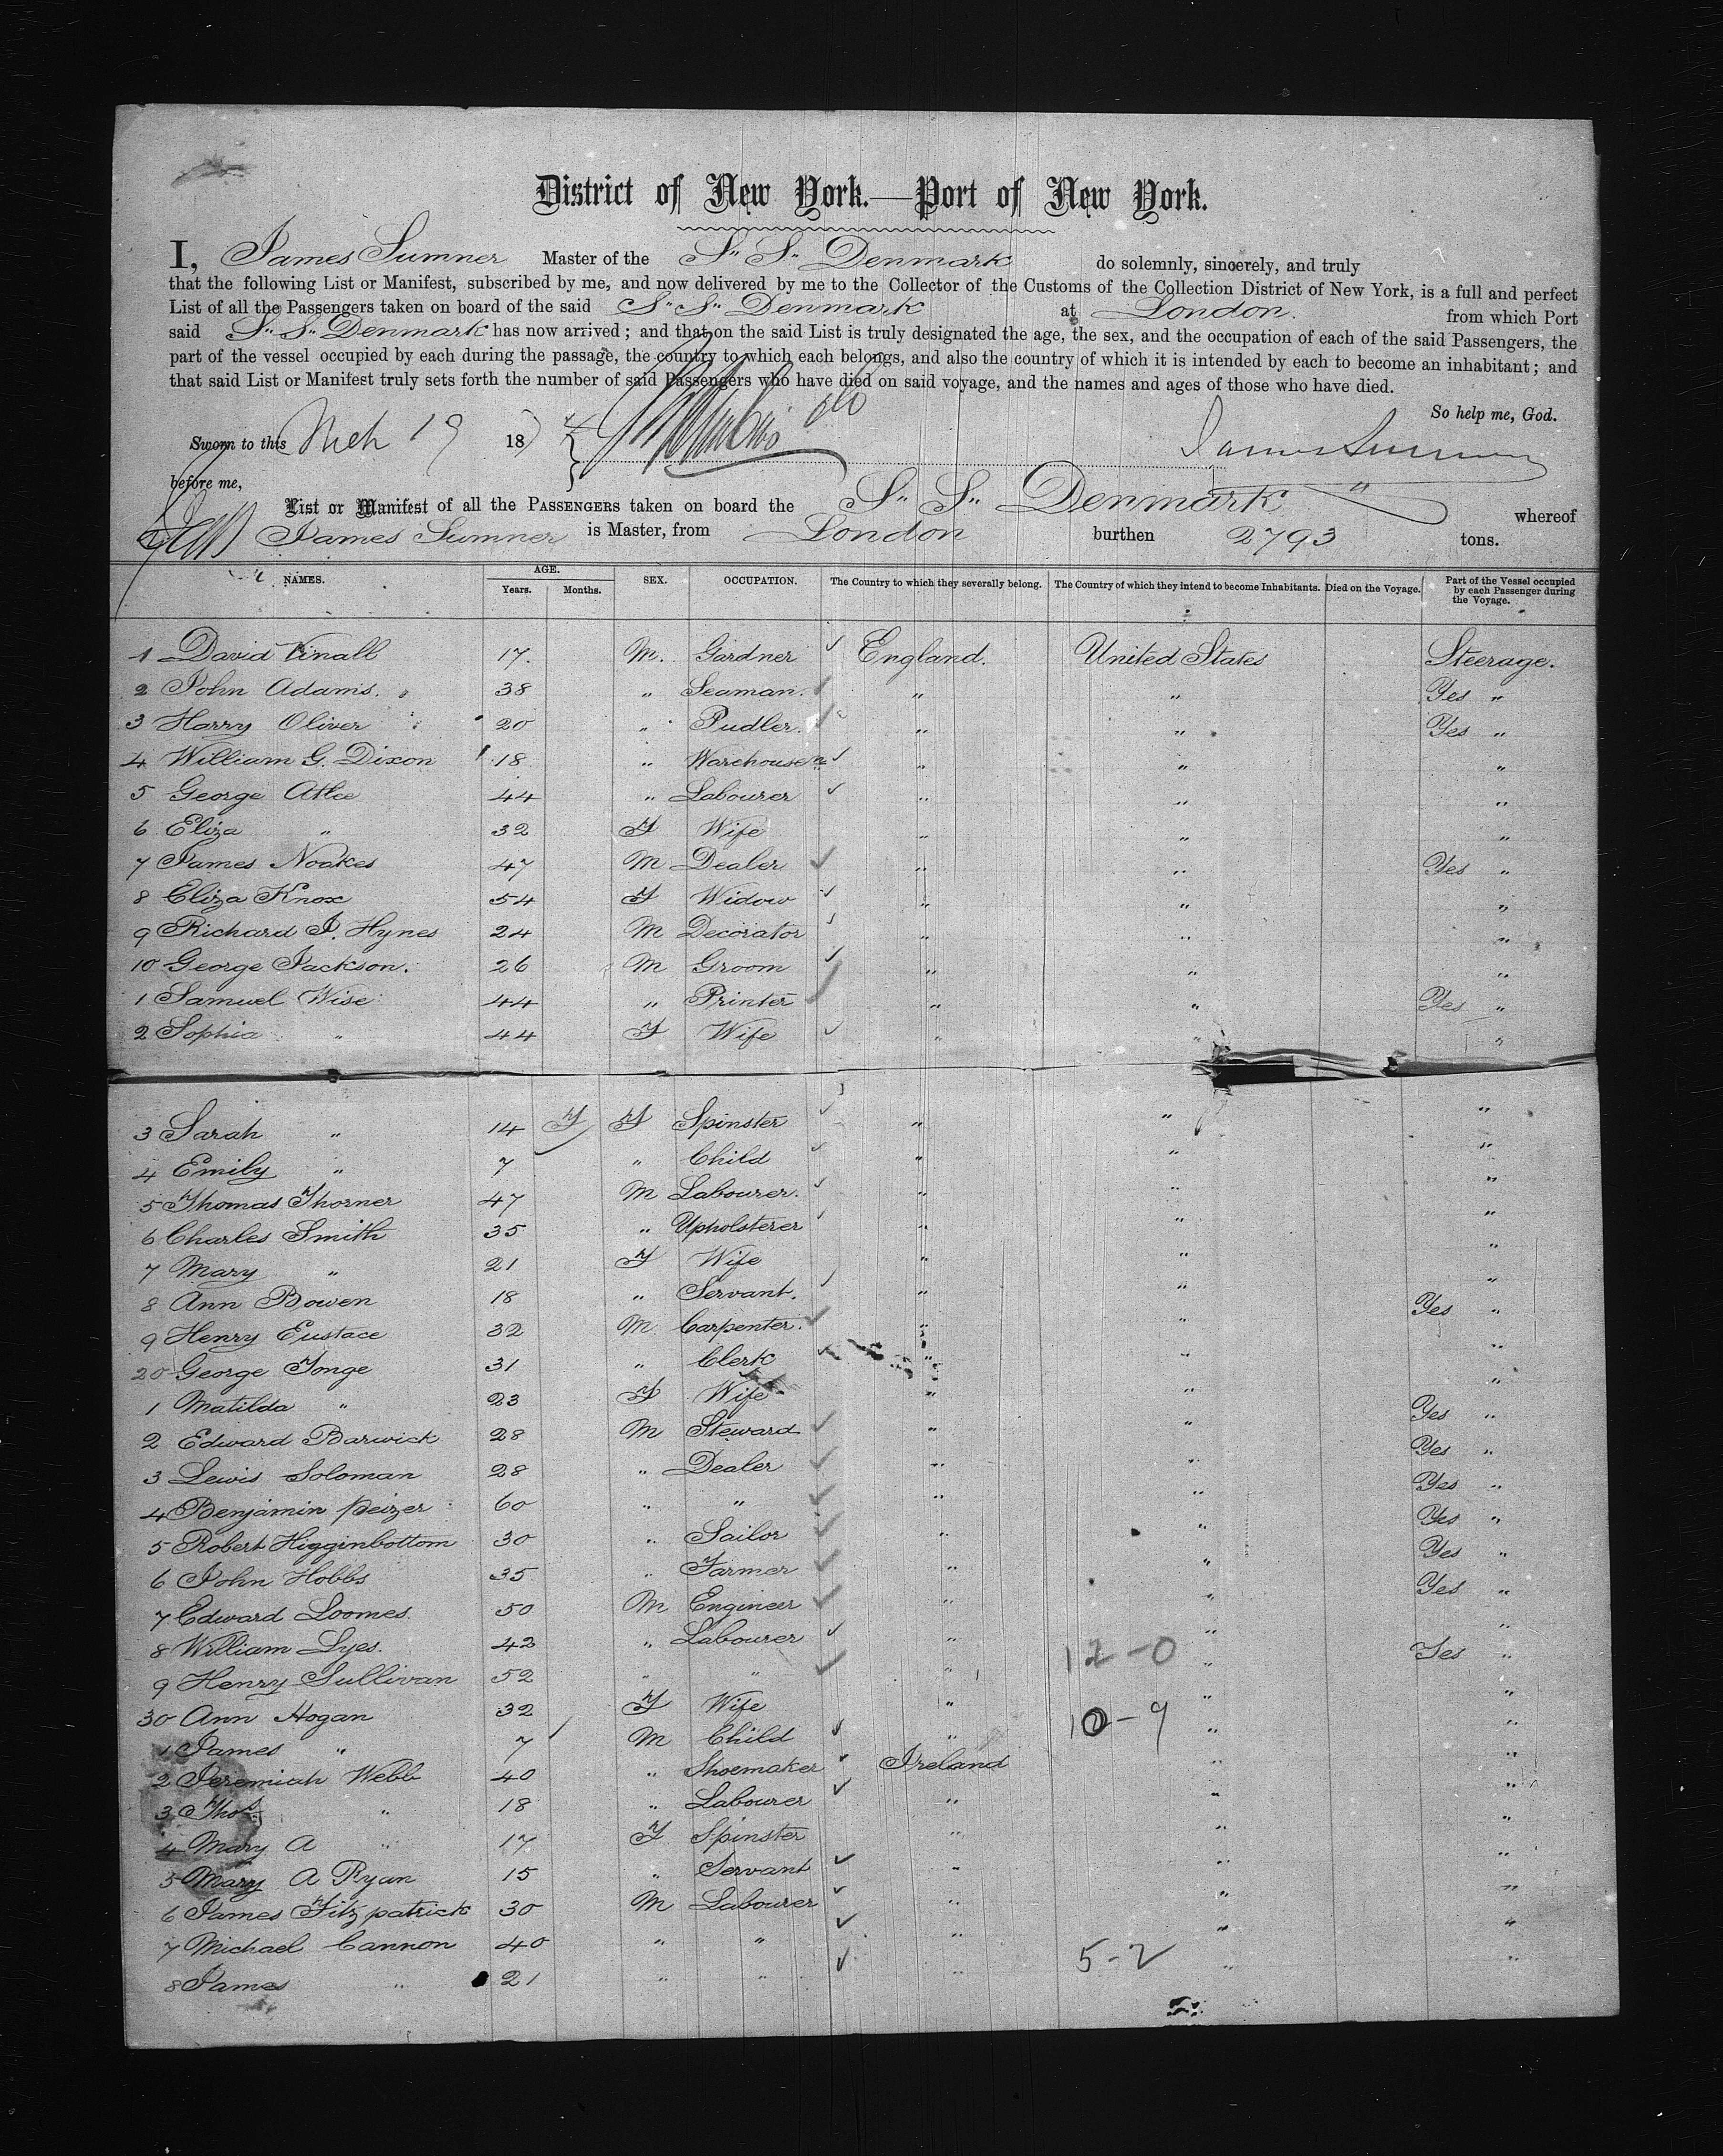 District of New York.—Port of New York.
I, James Sumner Master of the S.. S.. Denmark do solemnly, sincerely, and truly
that the following List or Manifest, subscribed by me, and now delivered by me to the Collector of the Customs of the Collection District of New York, is a full and perfect
List of all the Passengers taken on board of the said S.. S.. Denmark at London. from which Port
said S.. S.. Denmark has now arrived; and that on the said List is truly designated the age, the sex, and the occupation of each of the said Passengers, the
part of the vessel occupied by each during the passage, the country to which each belongs, and also the country of which it is intended by each to become an inhabitant; and
that said List or Manifest truly sets forth the number of said Passengers who have died on said voyage, and the names and ages of those who have died.
So help me, God.
Sworn to this Mch 19 18 James Sumner
before me,
List or Manifest of all the PASSENGERS taken on board the S.. S.. Denmark whereof
James Sumner is Master, from London burthen 2793 tons.
NAMES. AGE. Years. Months. SEX. OCCUPATION. The Country to which they severally belong. The Country of which they intend to become Inhabitants. Died on the Voyage. Part of the Vessel occupied by each Passenger during the Voyage.
1 David Vinall 17. M. Gardner England. United States Steerage.
2 John Adams. 38 " Seaman. " " Yes "
3 Harry Oliver 20 " Pudler. " " Yes "
4 William G. Dixon 18 " Warehousen " " "
5 George Atlee 44 " Labourer " " "
6 Eliza " 32 F Wife " " "
7 James Noakes 47 M Dealer " " Yes "
8 Eliza Knox 54 F Widow " " "
9 Richard J. Hynes 24 M Decorator " " "
10 George Jackson. 26 M Groom " " "
1 Samuel Wise 44 " Printer " " Yes "
2 Sophia " 44 F Wife " " "
3 Sarah " 14 F F Spinster " " "
4 Emily " 7 " Child " " "
5 Thomas Thorner 47 M Labourer. " " "
6 Charles Smith 35 " Upholsterer " " "
7 Mary " 21 F Wife " " "
8 Ann Bowen 18 " Servant. " " "
9 Henry Eustace 32 M Carpenter. " " Yes "
20 George Tonge 31 " Clerk " " "
1 Matilda " 23 F Wife " " "
2 Edward Barwick 28 M Steward " " Yes "
3 Lewis Soloman 28 " Dealer " " Yes "
4 Benjamin Peizer 60 " " " " Yes "
5 Robert Higginbottom 30 " Sailor " " Yes "
6 John Hobbs 35 " Farmer " " Yes "
7 Edward Loomes. 50 M Engineer " " Yes "
8 William Lyes. 42 " Labourer " " "
9 Henry Sullivan 52 " " " 12-0 " Yes "
30 Ann Hogan 32 F Wife " " "
1 James " 7 M Child " 10-9 " "
2 Jeremiah Webb 40 " Shoemaker Ireland " "
3 Thos " 18 " Labourer " " "
4 Mary A " 17 F Spinster " " "
5 Mary A Ryan 15 " Servant " " "
6 James Fitzpatrick 30 M Labourer " " "
7 Michael Cannon 40 " " " " "
8 James " 21 " " " 5-2 " "